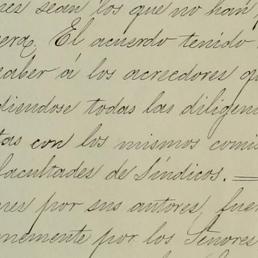 res sean los que no han p
era. El acuerdo tenido
saber á los acreedores qu
diendose todas las diligen
tas con los mismos comi
facultades de Síndicos.—
nes por sus autores, fue
nemente por los Señores